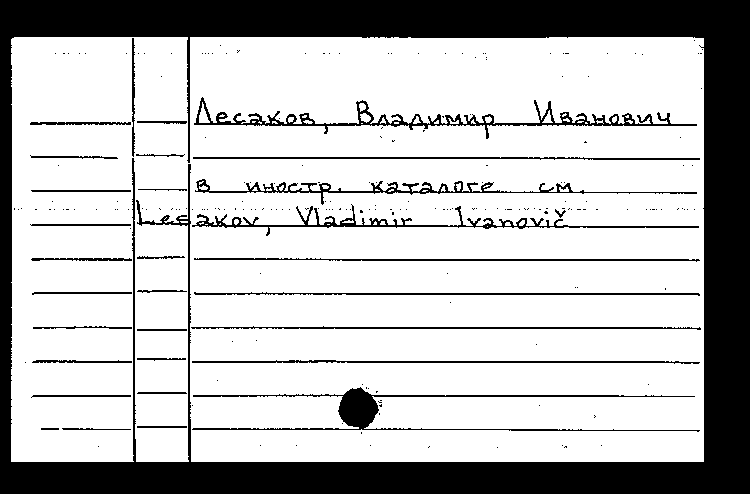 Лесаков, Владимир Иванович
в иностр. каталоге см.
Lesakov, Vladimir Ivanovič